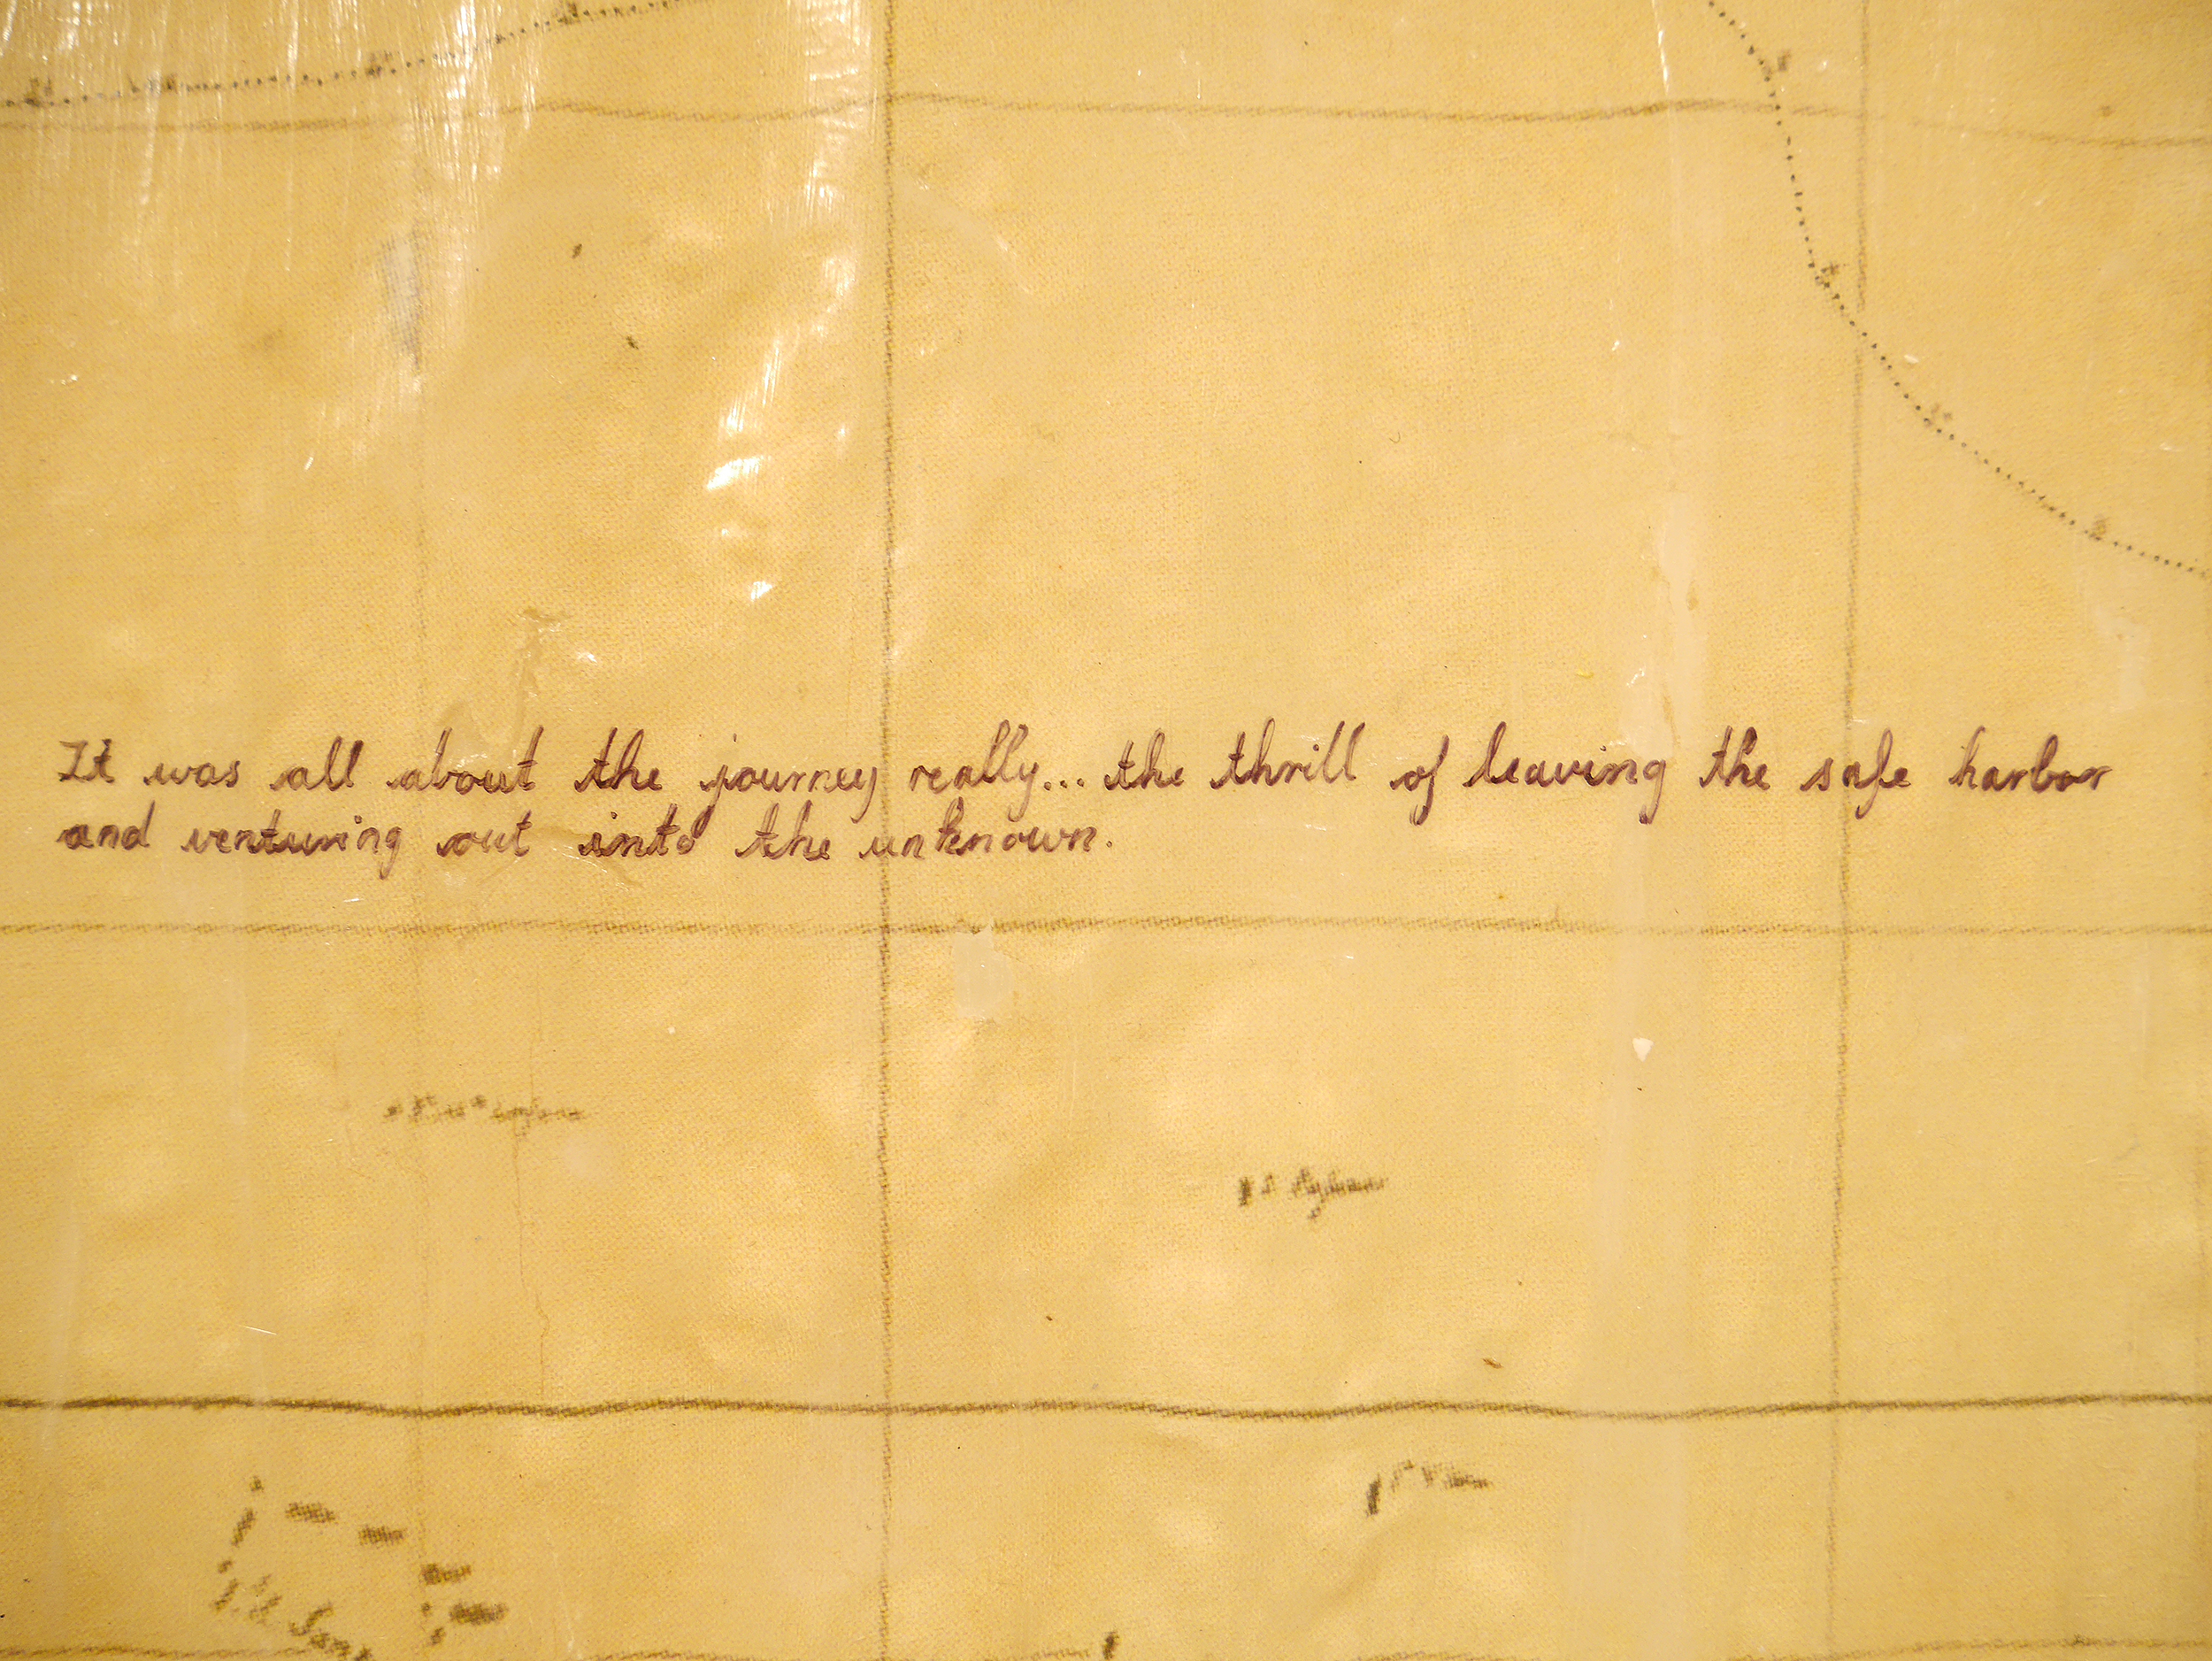 It was all about the journey really... the thrill of leaving the safe harbor
and venturing out into the unknown.